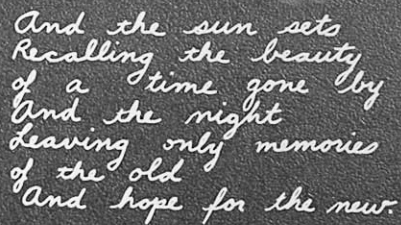 And the sun sets
Recalling the beauty
of a time gone by
And the night
Leaving only memories
of the old
And hope for the new.